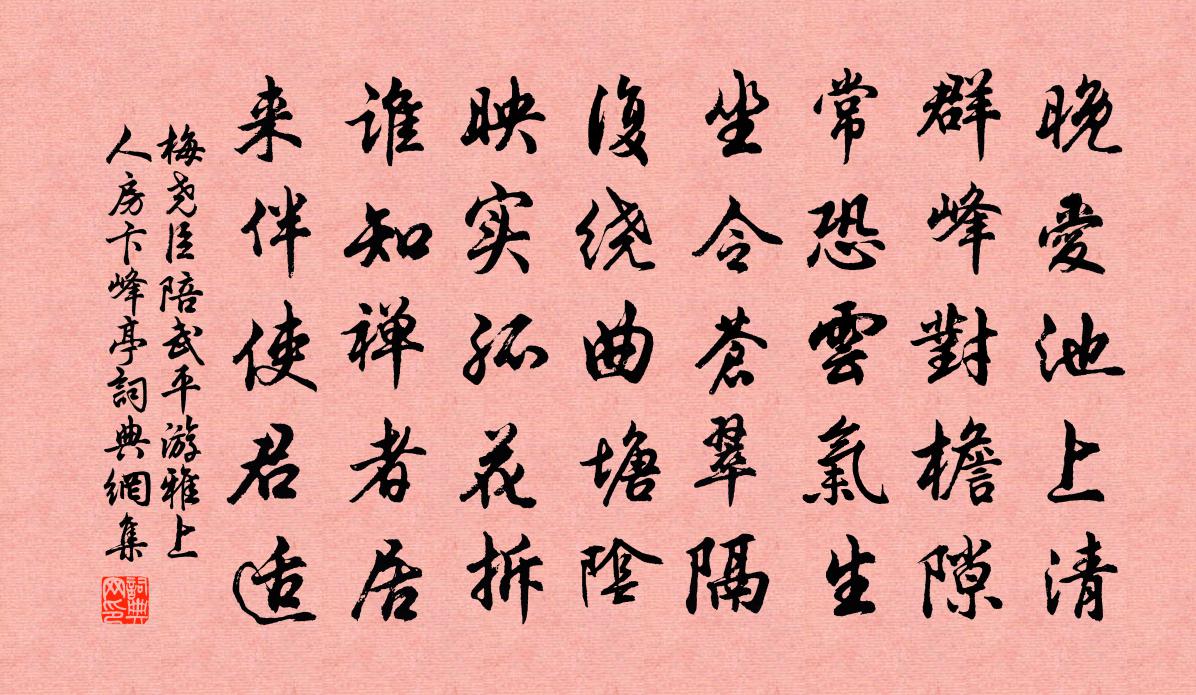 晚愛池上清
群峰對檐隙
常恐雲氣生
坐令蒼翠隔
復绕曲塘陰
映实孤花拆
谁知禅者居
来伴使君适
梅尧臣陪武平游雅上
人房卞峰亭詞典網集
詞典
网印